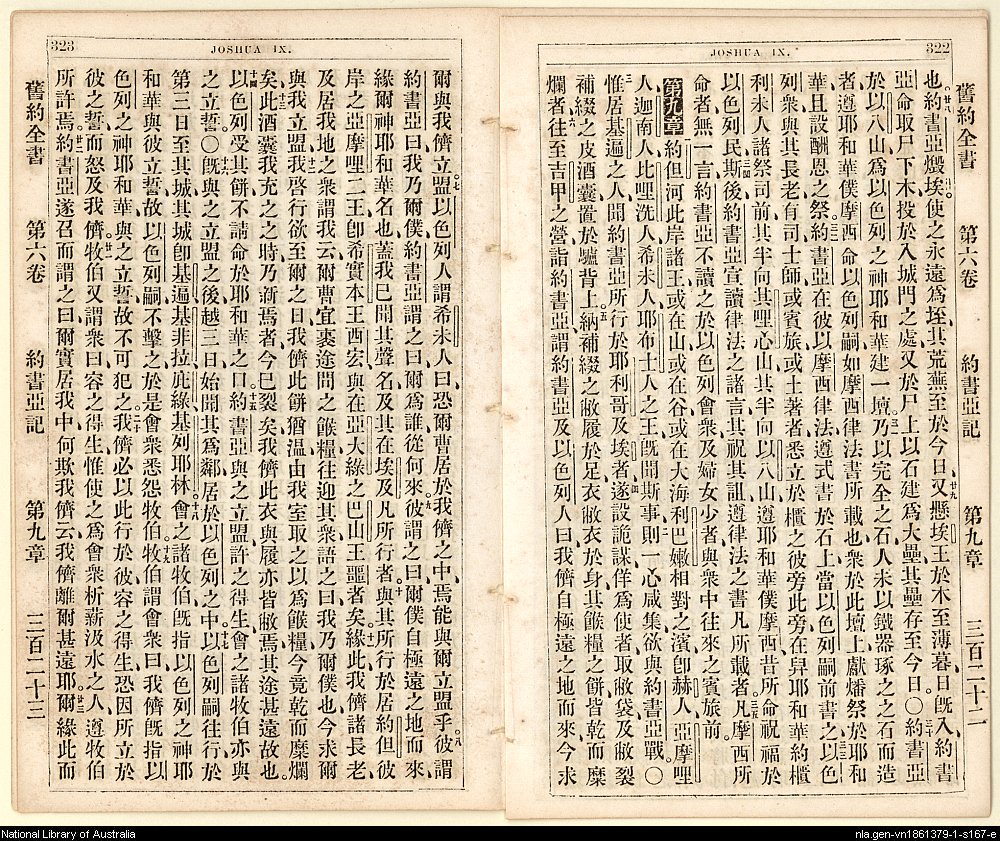 322
JOSHUA IX.
舊約全書 第六卷 約書亞記 第九章 三百二十二
也約書亞燬埃使之永遠爲垤其荒蕪至於今日又懸埃王於木至薄暮日旣入約書
亞命取尸下木投於入城門之處又於尸上以石建爲大壘其壘存至今日〇約書亞
於以八山爲以色列之神耶和華建一壇乃以完全之石人未以鐵器琢之之石而造
者遵耶和華僕摩西命以色列嗣如摩西律法書所載也衆於此壇上獻燔祭於耶和
華且設酬恩之祭約書亞在彼以摩西律法遵式書於石上當以色列嗣前書之以色
列衆與其長老有司士師或賓旅或土著者悉立於櫃之彼旁此旁在舁耶和華約櫃
利未人諸祭司前其半向其哩心山其半向以八山遵耶和華僕摩西昔所命祝福於
以色列民斯後約書亞宣讀律法之諸言其祝其詛遵律法之書凡所載者凡摩西所
命者無一言約書亞不讀之於以色列會衆及婦女少者與衆中往來之賓旅前
第九章 約但河此岸諸王或在山或在谷或在大海利巴嫩相對之濱卽赫人亞摩哩
人迦南人比哩洗人希未人耶布士人之王旣聞斯事則一心咸集欲與約書亞戰〇
惟居基遍之人聞約書亞所行於耶利哥及埃者遂設詭謀佯爲使者取敝袋及敝裂
補綴之皮酒囊置於驢背上納補綴之敝履於足衣敝衣於身其餱糧之餅皆乾而糜
爛者往至吉甲之營詣約書亞謂約書亞及以色列人曰我儕自極遠之地而來今求
323
JOSHUA IX.
爾與我儕立盟以色列人謂希未人曰恐爾曹居於我儕之中焉能與爾立盟乎彼謂
約書亞曰我乃爾僕約書亞謂之曰爾爲誰從何來彼謂之曰爾僕自極遠之地而來
緣爾神耶和華名也蓋我已聞其聲名及其在埃及凡所行者與其所行於居約但彼
岸之亞摩哩二王卽希實本王西宏與在亞大綠之巴山王噩者矣緣此我儕諸長老
及居我地之衆謂我云爾曹宜裹途間之餱糧往迎其衆語之曰我乃爾僕也今求爾
與我立盟我啓行欲至爾之日我儕此餅猶溫由我室取之以爲餱糧今竟乾而糜爛
矣此酒囊我充之之時乃新焉者今已裂矣我儕此衣與履亦皆敝焉其途甚遠故也
以色列受其餅不請命於耶和華之口約書亞與之立盟許之得生會之諸牧伯亦與
之立誓〇旣與之立盟之後越三日始聞其爲鄰居於以色列之中以色列嗣往行於
第三日至其城其城卽基遍基非拉庇綠基列耶林會之諸牧伯旣指以色列之神耶
和華與彼立誓故以色列嗣不擊之於是會衆悉怨牧伯牧伯謂會衆曰我儕旣指以
色列之神耶和華與之立誓故不可犯之我儕必以此行於彼容之得生恐因所立於
彼之誓而怒及我儕牧伯又謂衆曰容之得生惟使之爲會衆析薪汲水之人遵牧伯
所許焉約書亞遂召而謂之曰爾實居我中何欺我儕云我儕離爾甚遠耶爾緣此而
舊約全書 第六卷 約書亞記 第九章 三百二十三
National Library of Australia
nla.gen-vn1861379-1-s167-e